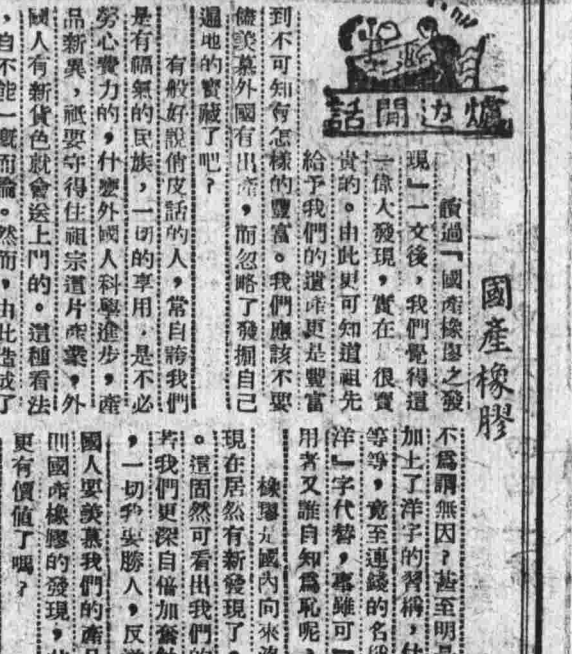 爐边閒話
國產橡膠
讀過「國產橡膠之發
現」一文後,我們覺得這
一偉大發現,實在 很寶
貴的。由此更可知道祖先
給予我們的遺產更是豐富
到不可知有怎樣的豐富。我們應該不要
儘羡慕外國有出產,而忽略了發掘自己
遍地的寶藏了吧?
有般好說俏皮話的人,常自誇我們
是有福氣的民族,一切的享用,是不必
勞心費力的,什麼外國人科學進步,產
品新異,祇要守得住祖宗這片產業,外
國人有新貨色就會送上門的。這種看法
,自不能一概而論。然而,由此造成了
不爲謂無因?甚至明
加上了洋子的習稱,
等等,竟至連錢的名
洋」字代替,事雖可
用者又誰自知爲恥呢
橡膠是國內向來
現在居然有新發現了
。這固然可看出我們的
若我們更深自倍加奮
,一切我要勝人,反
國人要羡慕我們的產
則國產橡膠的發現,
更有價值了嗎?